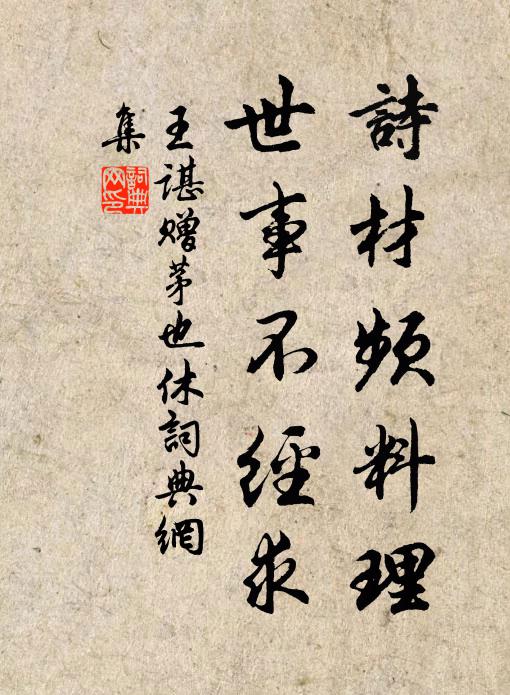 詩材頻料理
世事不經求
王諶贈茅也休詞典網
集
詞典
网印